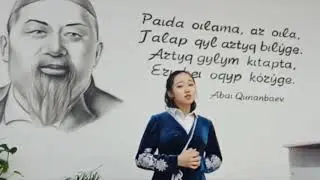 Paıda oılama, ar oıla,
Talap qyl artyq bilýge.
Artyq ǵylym kitapta,
oqyp kórýge.
Abaı Qunanbaev